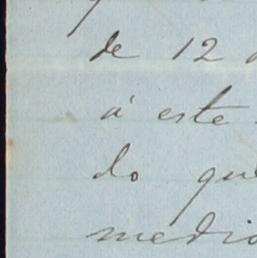 de 12 d
á este
do que
medio